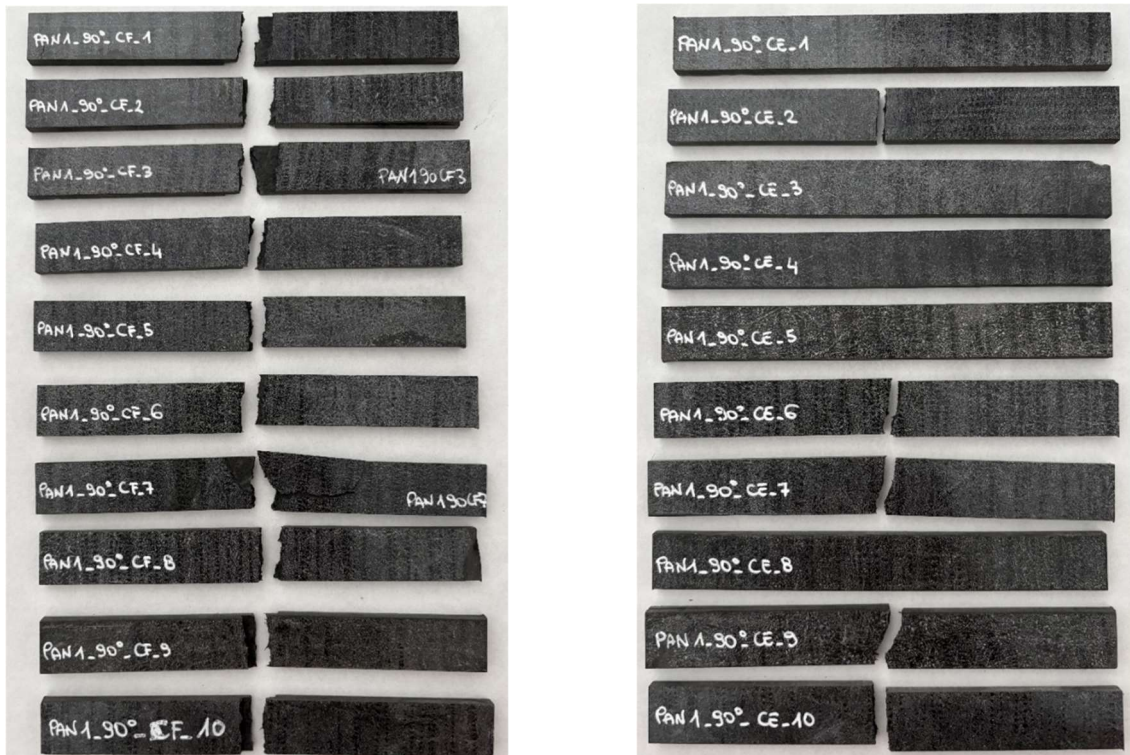 PAN1_90°_CF_1
PAN1_90°_CF_2
PAN1_90°_CF_3
PAN190CF3
PAN1_90°_CF_4
PAN1_90°_CF_5
PAN1_90°_CF_6
PAN1_90°_CF_7
PAN190CF7
PAN1_90°_CF_8
PAN1_90°_CF_9
PAN1_90°_CF_10
PAN1_90°_CE_1
PAN1_90°_CE_2
PAN1_90°_CE_3
PAN1_90°_CE_4
PAN1_90°_CE_5
PAN1_90°_CE_6
PAN1_90°_CE_7
PAN1_90°_CE_8
PAN1_90°_CE_9
PAN1_90°_CE_10